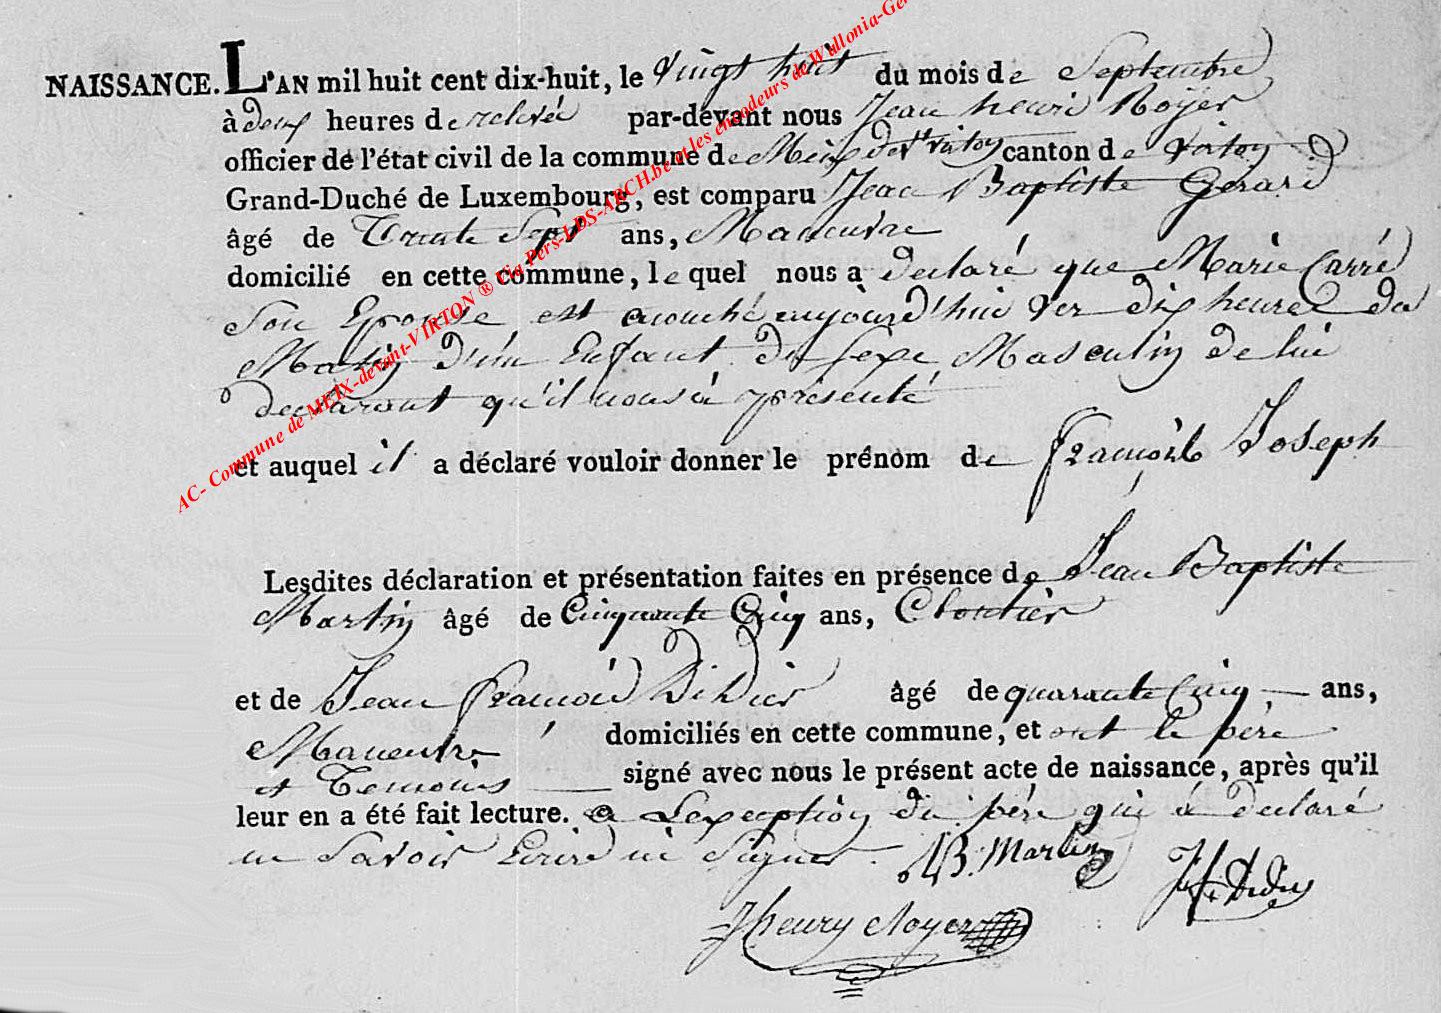 NAISSANCE. L'AN mil huit cent dix-huit, le vingt huit du mois de Septembre
à deux heures de relevée par-devant nous Jean henri Royer
officier de l'état civil de la commune de Meix devt virton canton de virton
Grand-Duché de Luxembourg, est comparu Jean Baptiste Gerard
âgé de Trente Sept ans, Maneuvre
domicilié en cette commune, lequel nous a declaré que Marie Carré
Son Epouse est acouché aujourd'hui ver dix heures du
Matin d'un Enfant du Sexe Masculin de lui
declarant qu'il nous à présenté
et auquel il a déclaré vouloir donner le prénom de françois Joseph
Lesdites déclaration et présentation faites en présence de Jean Baptiste
Martin âgé de Cinquante Cinq ans, Cloutier
et de Jean françois Didier âgé de quarante Cinq ans,
Maneuvre domiciliés en cette commune, et ont le père
et Temoins signé avec nous le présent acte de naissance, après qu'il
leur en a été fait lecture. a Lexception du père qui à declaré
ne Savoir Ecrire ni Signer.
JB. Martin
J f Didier
Jhenry Royer
AC- Commune de MEIX-devant-VIRTON ® Via Pers-LDS-ARCH.be et les encodeurs de Wallonia-Ge